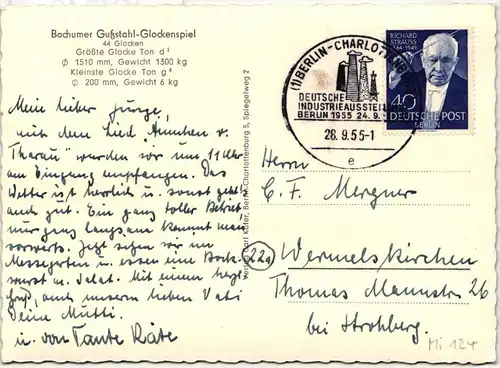 Bochumer Gußstahl-Glockenspiel
44 Glocken
Größte Glocke Ton d¹
ø 1510 mm, Gewicht 1300 kg
Kleinste Glocke Ton g⁴
ø 200 mm, Gewicht 6 kg
Mein lieber Junge,
mit dem Lied „Ännchen v.
Tharau" wurden wir um 11 Uhr
am Eingang empfangen. Das
Wetter ist herrlich u. sonst geht's
auch gut. Ein ganz toller Betrieb
nur ganz langsam kommt man
vorwärts. Jetzt sitzen wir im
Messegarten u. essen eine Bock-
wurst m. Salat. Mit einem herzl.
Gruß, auch unserm lieben Vati
Deine Mutti.
u. von Tante Käte
Verlag Karl Käfer, Berlin-Charlottenburg 5, Spiegelweg 2
(1) BERLIN-CHARLOTTENBURG
DEUTSCHE
INDUSTRIEAUSSTELLUNG
BERLIN 1955 24. 9.
28. 9. 55-1
e
RICHARD
STRAUSS
1864-1949
40
DEUTSCHE POST
BERLIN
Herrn
C. F. Mergner
22a Wermelskirchen
Thomas Mannstr. 26
bei Strohberg.
Mi 124